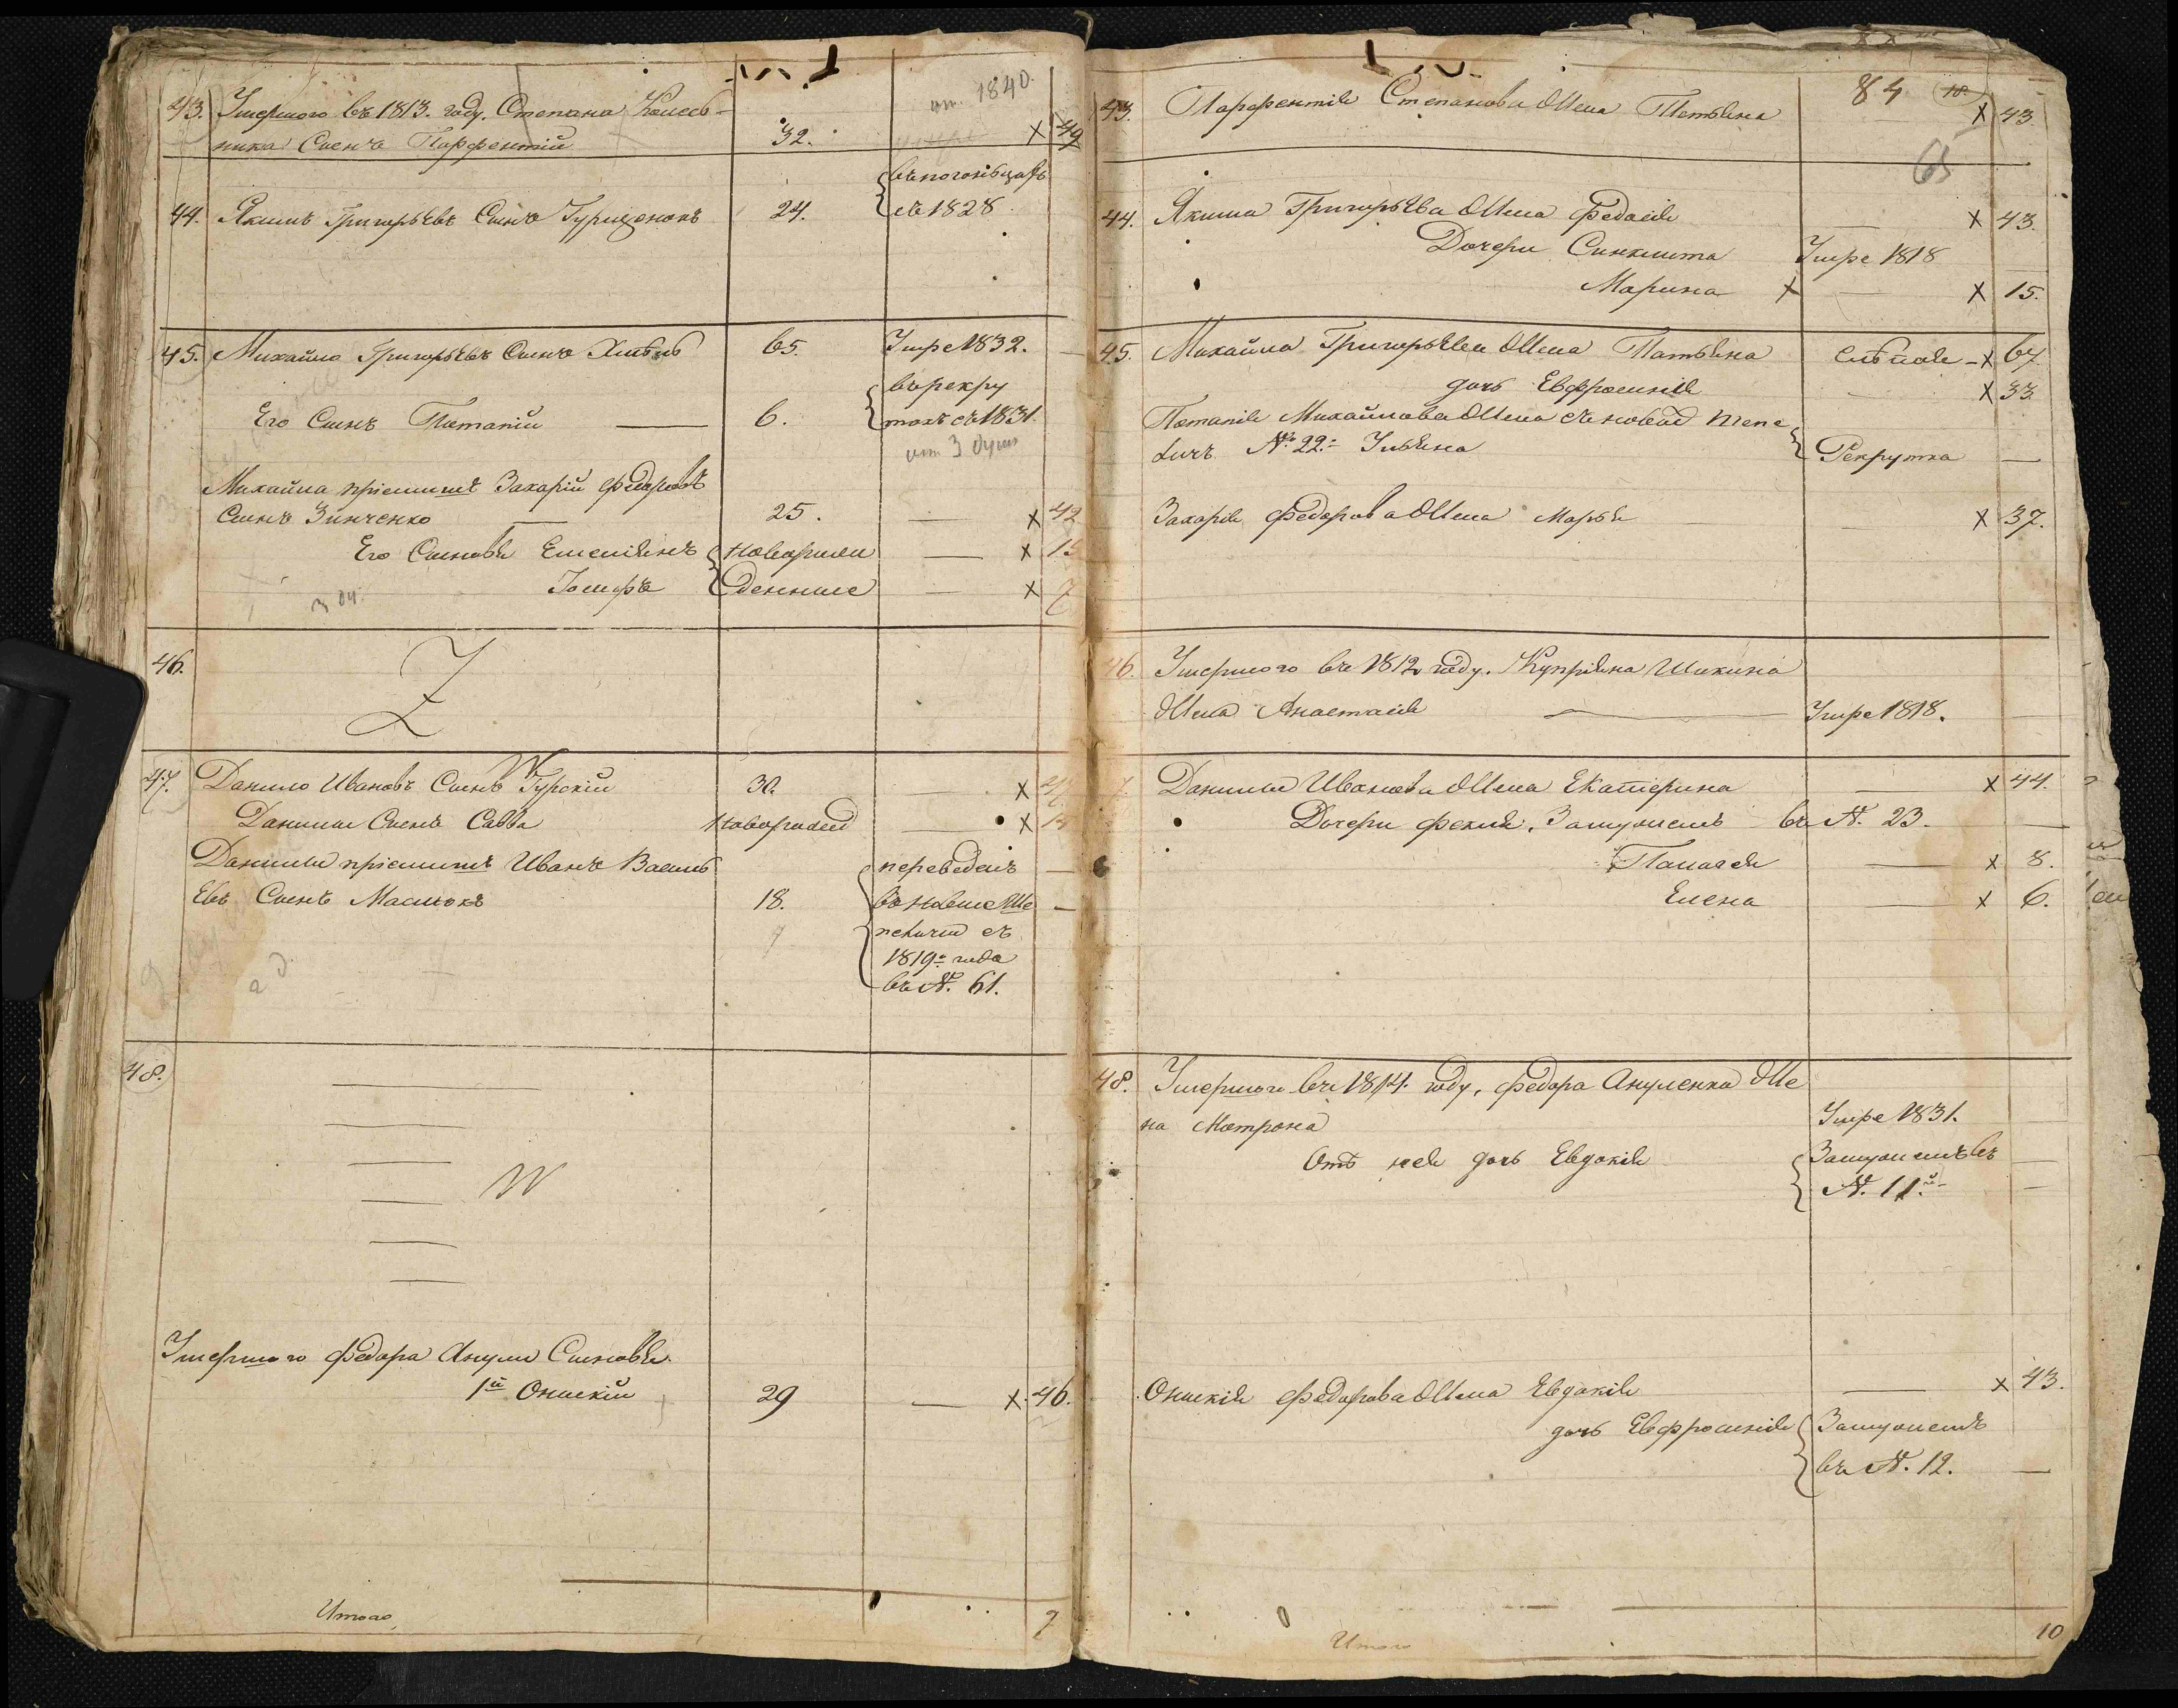 43. Умершого въ 1813. году. Степана Колесь-
ника Сынъ Парфентій 32. х 49
ум. 1840.
44. Якимъ Григорьевъ Сынъ Гурщенокъ 24.
съ 1828
45. Михайло Григорьевъ Сынъ 65. Умре 1832. —
Его Сынъ Потапій — 6.
въ рекру
тахъ съ 1831.
Михайла пріемишъ Захарій Федоровъ
Сынъ Зинченко — 25. — х 42
Его Сыновья Емеліянъ новорож — х 15
Іосифъ денные — х 7
46.
47. Данило Ивановъ Сынъ Гурскій 30. — х 47
Данилы Сынъ Савва новорожд — х
Данилы пріемишъ Иванъ Василь
евъ Сынъ Маслюкъ 18.
переведенъ —
въ новые Ше —
пеличи съ
1819го года
въ №. 61.
48.
Умершого Федора Анули Сыновья
1й Онискій 29 — х 46.
Итого 7
84 10.
65
43. Парфентія Степанова Жена Татьяна — х 43.
44. Якима Григорьева Жена Федосія — х 43.
Дочери Синклита Умре 1818
Марина х — х 15.
45. Михайла Григорьева Жена Татьяна слѣпая – х 67
дочь Евфросинія х 33
Потапія Михайлова Жена съ новой Шепе
личъ №. 22. Ульяна Рекрутка —
Захарія Федорова Жена Марья — х 37.
46. Умершого въ 1812 году. Купріяна Шикина
Жена Анастасія — Умре 1818.
47. Данилы Иванова Жена Екатерина — х 44.
Дочери Фекла, Замужемъ въ №. 23. —
Палагея — х 8.
Елена — х 6.
48. Умершого въ 1814. году, Федора Ануленка Же
на Мотрона Умре 1831.
Отъ нея дочь Евдокія Замужемъ въ —
№. 11.й —
Онискія Федорова Жена Евдокія — х 43.
дочь Евфросинія Замужемъ
въ №. 12. —
Итого 10